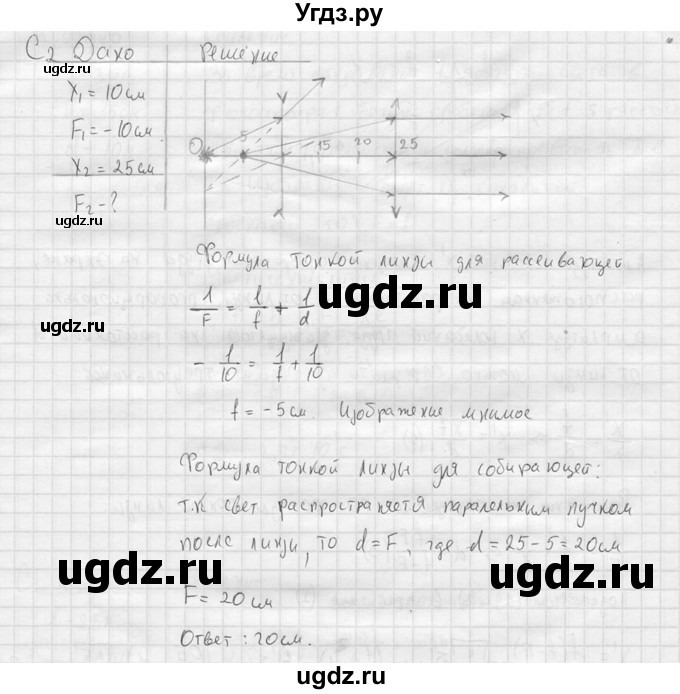 Угдз.ру
С2 Дано
Решение
ugdz.ru
X₁ = 10 см
F₁ = -10 см
X₂ = 25 см
F₂ - ?
ugdz.ru
O 5 15 20 25
ugdz.ru
Формула тонкой линзы для рассеивающей
ugdz.ru
1/F = 1/f + 1/d
ugdz.ru
- 1/10 = 1/f + 1/10
f = -5 см. Изображение мнимое
Формула тонкой линзы для собирающей:
т.к свет распространяется паралельным пучком
после линзы, то d = F, где d = 25 - 5 = 20 см
ugdz.ru
ugdz.ru
F = 20 см
ugdz.ru
Ответ: 20 см.
ugdz.ru